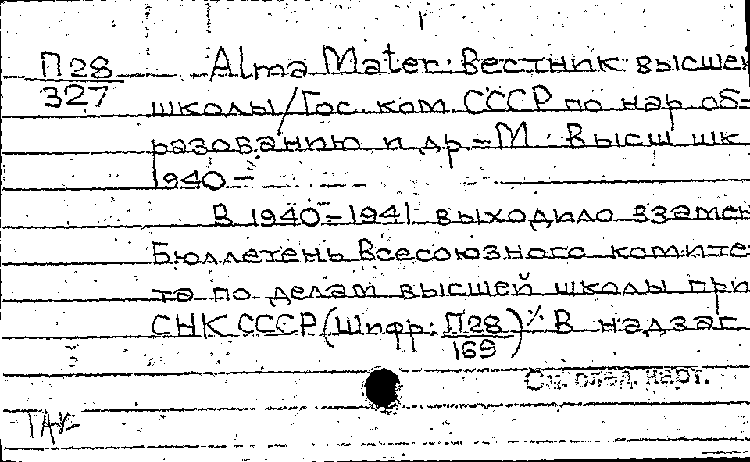 П28 Alma Mater: Вестник высшей
327 школы/Гос. ком. СССР по нар об-
разованию и др.-М.: Высш шк
1940-
В 1940-1941 выходило взамен
Бюллетень Всесоюзного комите-
та по делам высшей школы при
СНК СССР (Шифр: П28/169) В надзаг
См. след. карт.